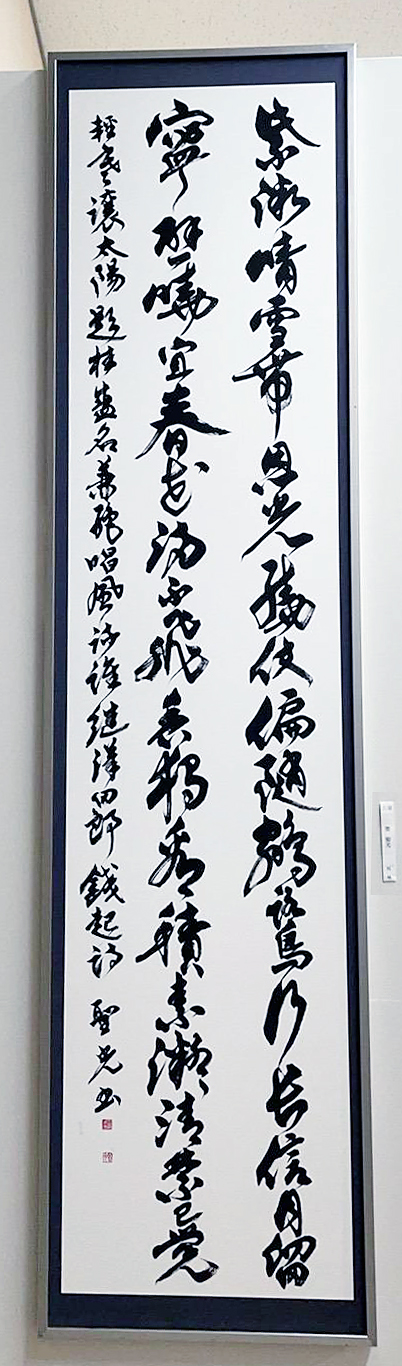 紫微晴雪帶恩光繞仗偏随鵷鷺行長信月留
寧避曉宜春花満不飛香獨看積素凝清禁已覺
輕寒讓太陽題柱盛名兼絶唱風流誰継漢田郎 錢起詩 聖光書